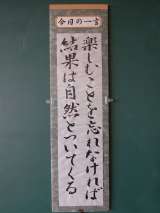 今日の一言
楽しむことを忘れなければ
結果は自然とついてくる